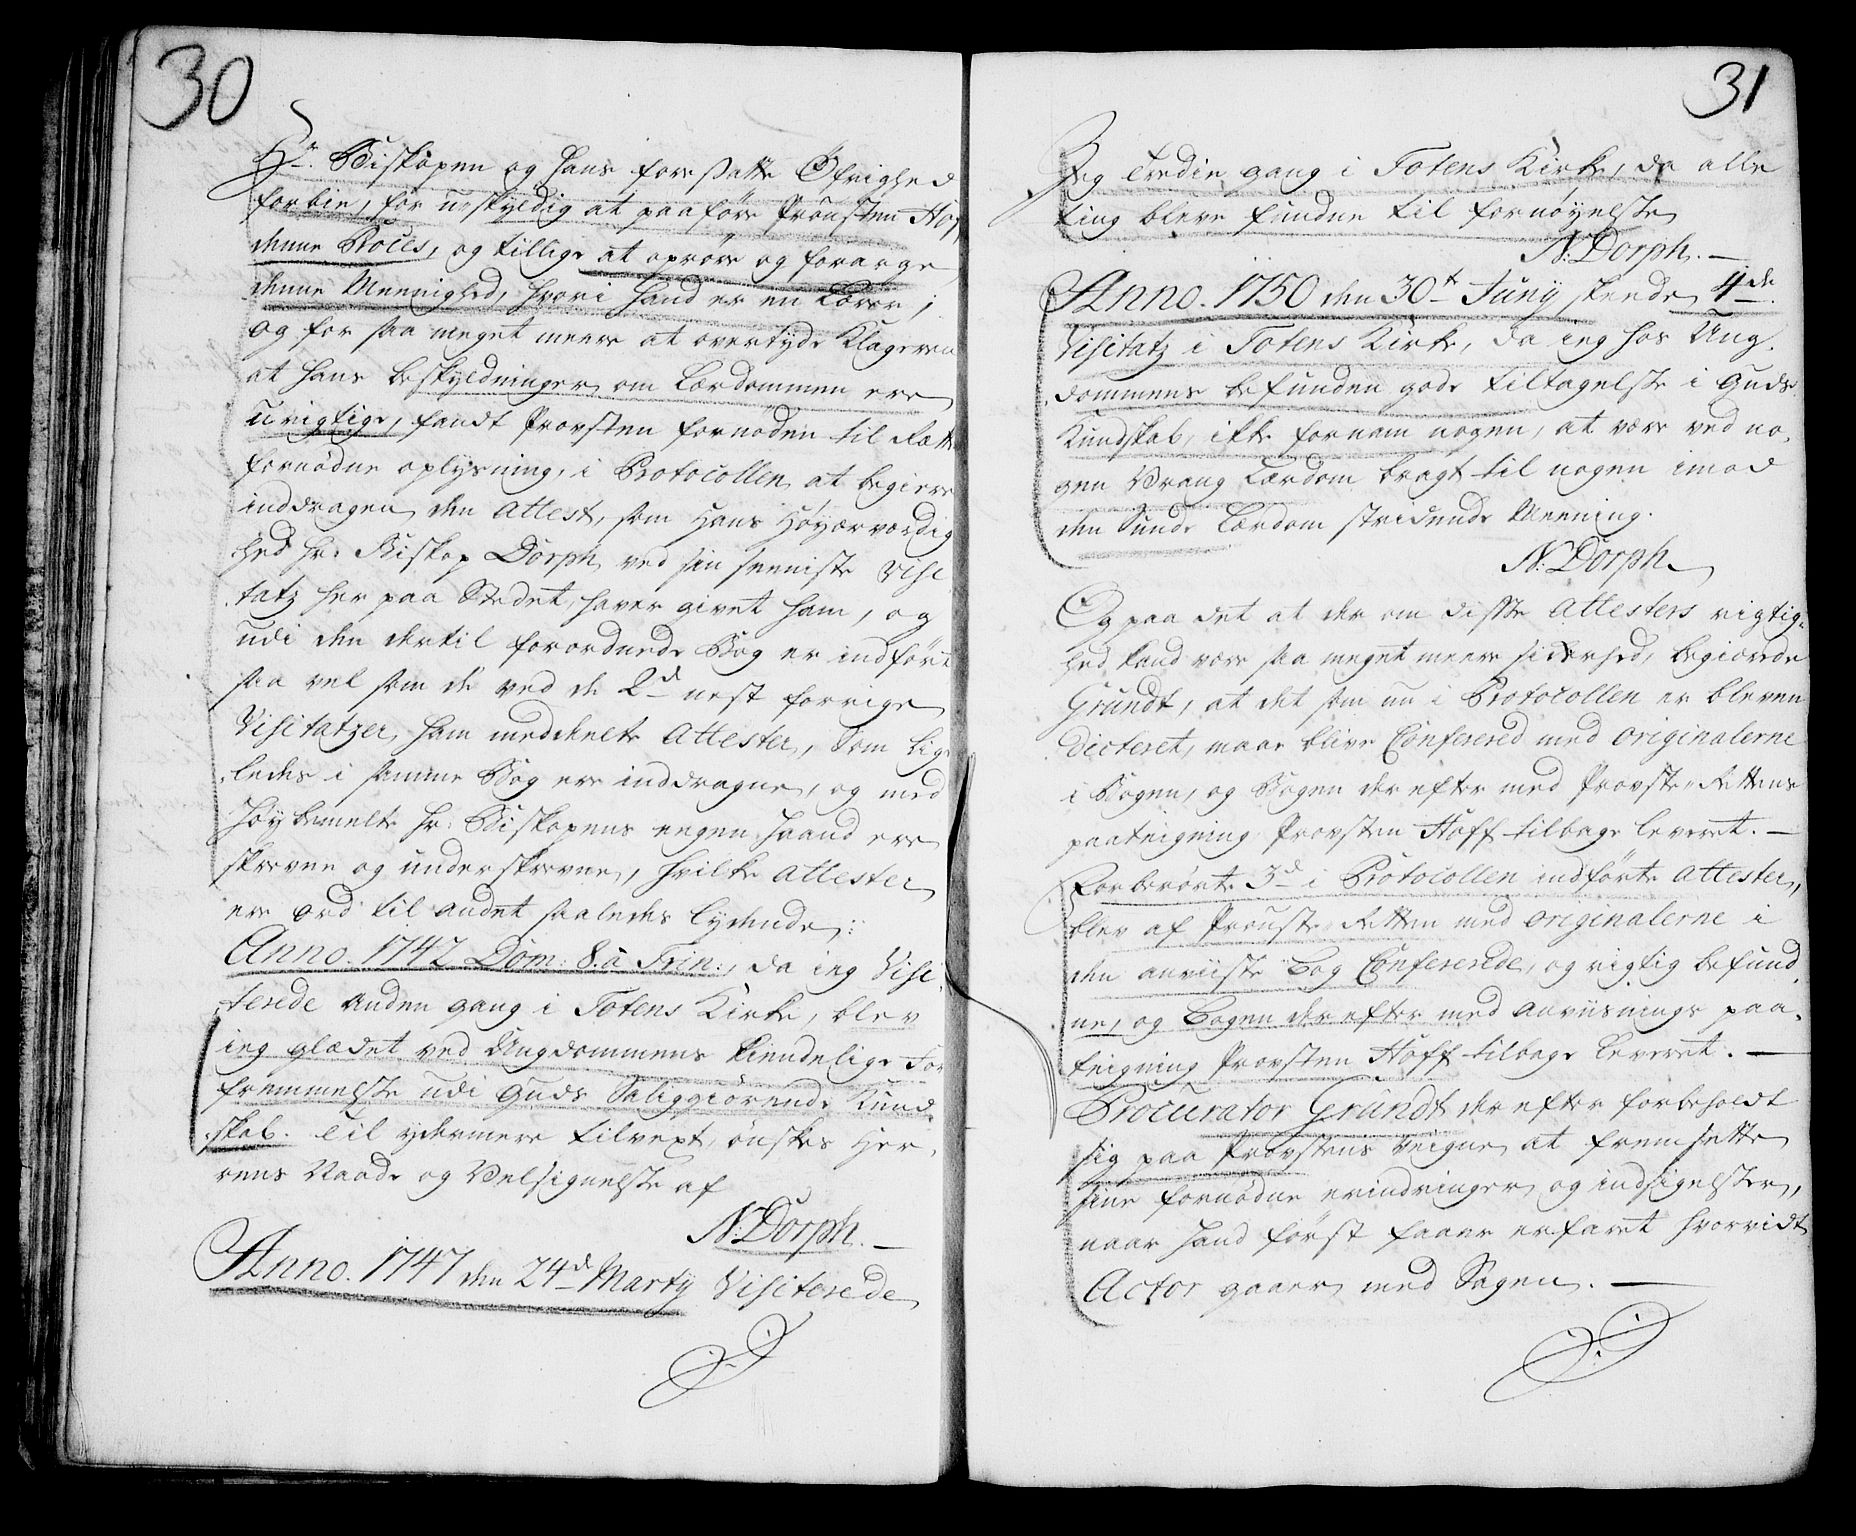 30
Hr. Biskopen og hans foresatte Øfrighed
forbie, for uskyldig at paaføre Provsten Hoff
denne Proces, og tillige at oprøre og forarge
denne Meenighed, hvori hand er en Lærer;
og for saa meget meere at overtyde Klageren
at hans beskyldninger om Lærdommen ere
urigtige, fandt Provsten fornøden til Rettens
fornødne oplysning, i Protocollen at begiere
inddragen den Attest, som Hans Høyærværdig
hed hr. Biskop Dorph, ved sin seeniste Visi
tatz her paa Stedet, haver givet ham, og
udi den dertil forordnede Bog er indført
saa vel som de ved de 2de nest forrige
Visitatzer ham meddeelte Attester, som lige
ledes i samme Bog ere inddragne, og med
høybemelte hr: Biskopens eegen haand ere
skrevne og underskrevne, hvilke Attester
ere ord til andet saaledes lydende:
Anno. 1742 Dom: 8. à Trin:, da ieg Visi
terede Anden gang i Totens Kirke, blev
ieg glædet ved Ungdommens kiendelige For
fremmelse udi Guds Saliggiørende Kund
skab. Til ydermere tilvext, ønskes Her,
rens Naade og Velsignelse af
N: Dorph.
Anno. 1747 den 24de Marty Visiterede
31
Jeg tredie gang i Totens Kirke, da alle
ting bleve fundne til fornøyelse
N: Dorph.
Anno. 1750 den 30te Juny skeede 4de
Visitatz i Totens Kirke, da ieg hos Ung,
dommens befunden gode tiltagelse i Guds
Kundskab, ikke fornam nogen, at være ved no,
gen Vrang Lærdom bragt til nogen imod
den Sunde Lærdom stridende Meening.
N: Dorph
Og paa det at der om disse Attesters rigtig,
hed kand være saa meget meere sikerhed, begierede
Grundt, at det som nu i Protocollen er bleven
Dicteret, maae blive Confererед med originalerne
i Bogen, og Bogen derefter med Provste-Rettens
paateigning Provsten Hoff tilbage leveret.
Forberørte 3de i Protocollen indførte Attester,
blev af Provste-Retten med originalerne i
den anviiste Bog Confererede, og rigtig befund
ne, og Bogen derefter med anviisnings paa,
teigning Provsten Hoff tilbage leveret.
Procurator Grundt derefter forbeholdt
sig paa Provstens veigne at fremsette
sine fornødne erindringer og indsigelser,
naar hand først faaer erfaret hvorvidt
Actor gaaer med Sagen.